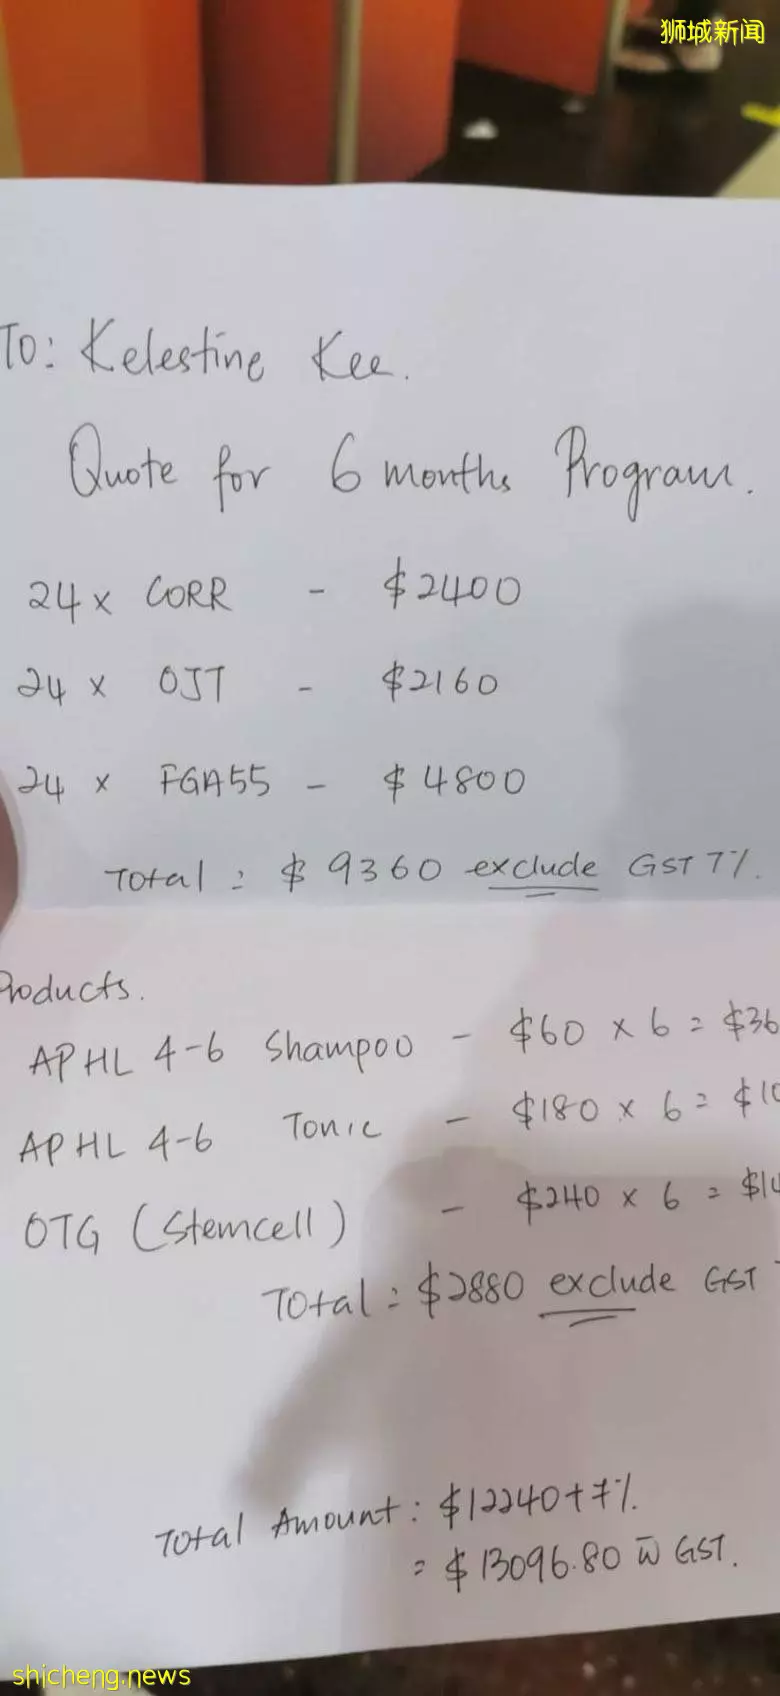 狮城新闻
To: Kelestine Kee.
Quote for 6 months Program.
24 x CORR - $2400
24 x OJT - $2160
24 x FGA55 - $4800
Total : $9360 exclude GST 7%.
Products.
APHL 4-6 Shampoo - $60 x 6 = $36
APHL 4-6 Tonic - $180 x 6 = $10
OTG (Stemcell) - $240 x 6 = $14
Total : $2880 exclude GST
Total Amount : $12240 + 7%
= $13096.80 w̄ GST.
shicheng.news